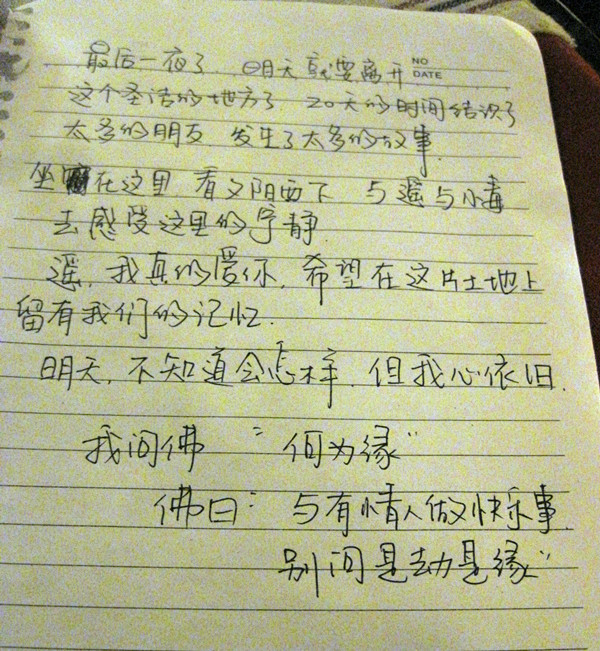 最后一夜了 明天就要离开
NO
DATE
这个圣洁的地方了 20天的时间结识了
太多的朋友 发生了太多的故事
坐在这里 看夕阳西下 与遥与小毒
去感受这里的宁静
遥,我真的爱你,希望在这片土地上
留有我们的记忆.
明天,不知道会怎样,但我心依旧.
我问佛 "何为缘"
佛曰:"与有情人做快乐事
别问是劫是缘"